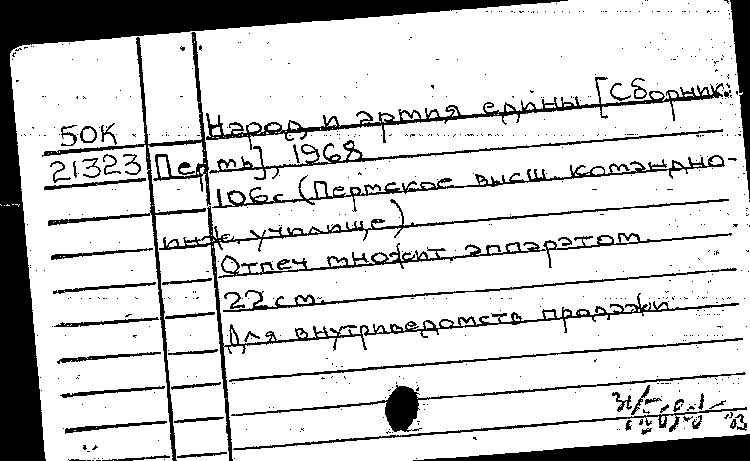 50К Народ и армия едины [Сборник.
21323 Пермь], 1968
106с (Пермское высш. командно-
инж. училище).
Отпеч множит. аппаратом.
22 см.
Для внутриведомств продажи